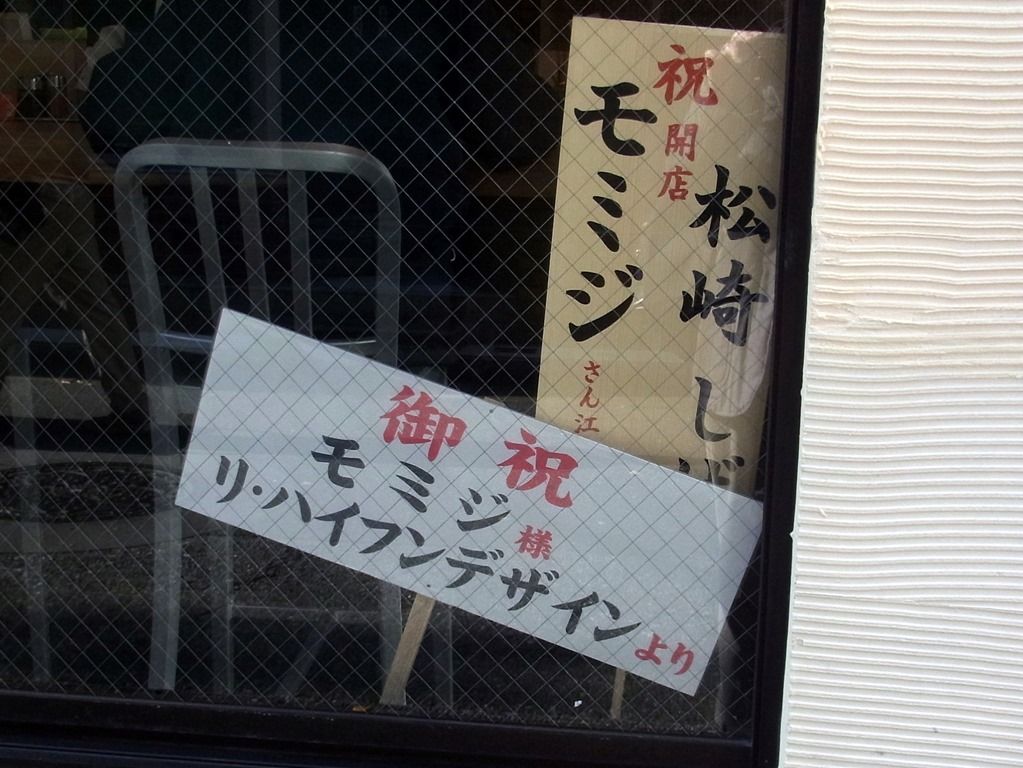 祝開店
モミジ
さん江
松崎しげ
御祝
モミジ様
リ・ハイフンデザイン
より